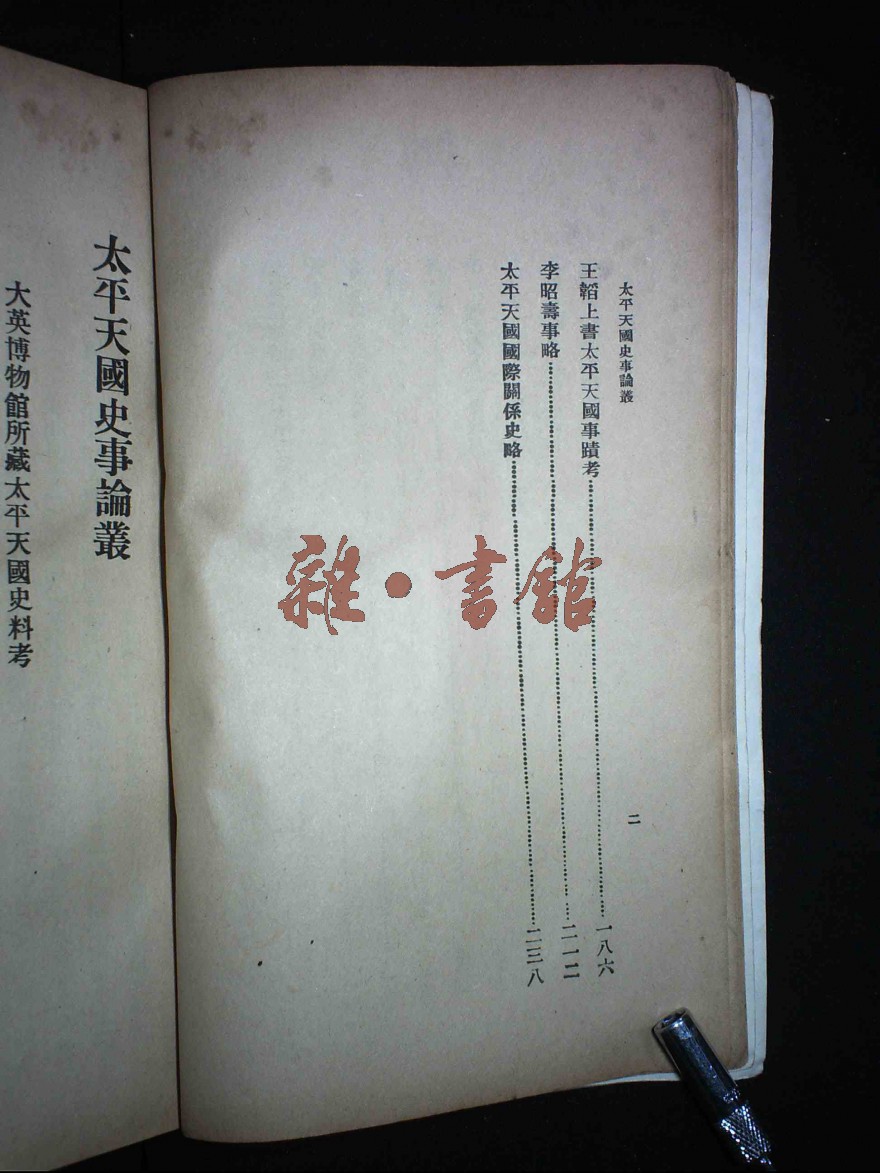 太平天國史事論叢
二
王韜上書太平天國事蹟考一八六
李昭壽事略二一二
太平天國國際關係史略二三八
太平天國史事論叢
大英博物館所藏太平天國史料考
雜·書館